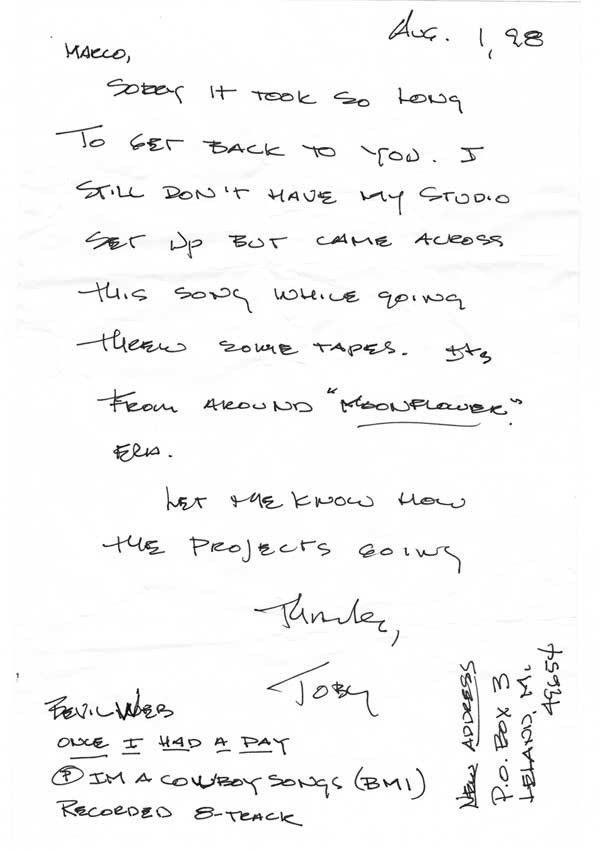 Aug. 1, 98
MARCO,
SORRY IT TOOK SO LONG
TO GET BACK TO YOU. I
STILL DON'T HAVE MY STUDIO
SET UP BUT CAME ACROSS
THIS SONG WHILE GOING
THREW SOME TAPES. ITS
FROM AROUND "MOONFLOWER".
ERA.
LET ME KNOW HOW
THE PROJECTS GOING
Thanks,
TOBY
BEVIL WEB
ONCE I HAD A DAY
Ⓟ IM A COWBOY SONGS (BMI)
RECORDED 8-TRACK
NEW ADDRESS
P.O. BOX 3
LELAND, MI.
49654